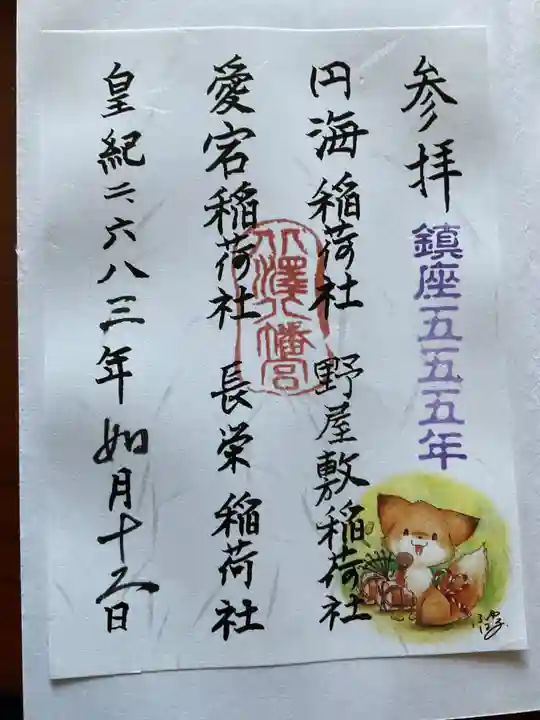 参拝
鎮座一五五五年
円海稲荷社 野屋敷稲荷社
愛宕稲荷社 長栄稲荷社
皇紀二六八三年如月十五日
澤八幡宮